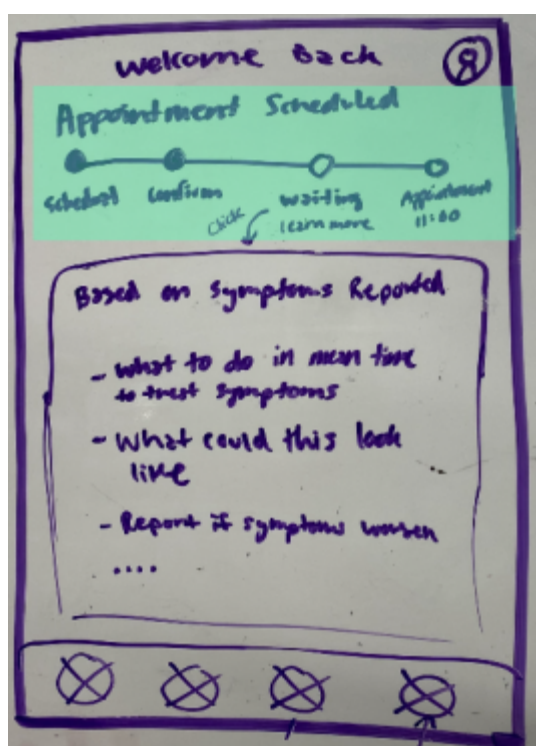 Welcome Back
Appointment Scheduled
Schedul Confirm Waiting Appointment
Click learn more 11:00
Based on Symptoms Reported
- What to do in mean time
to treat symptoms
- What could this look
like
- Report if symptoms worsen
....